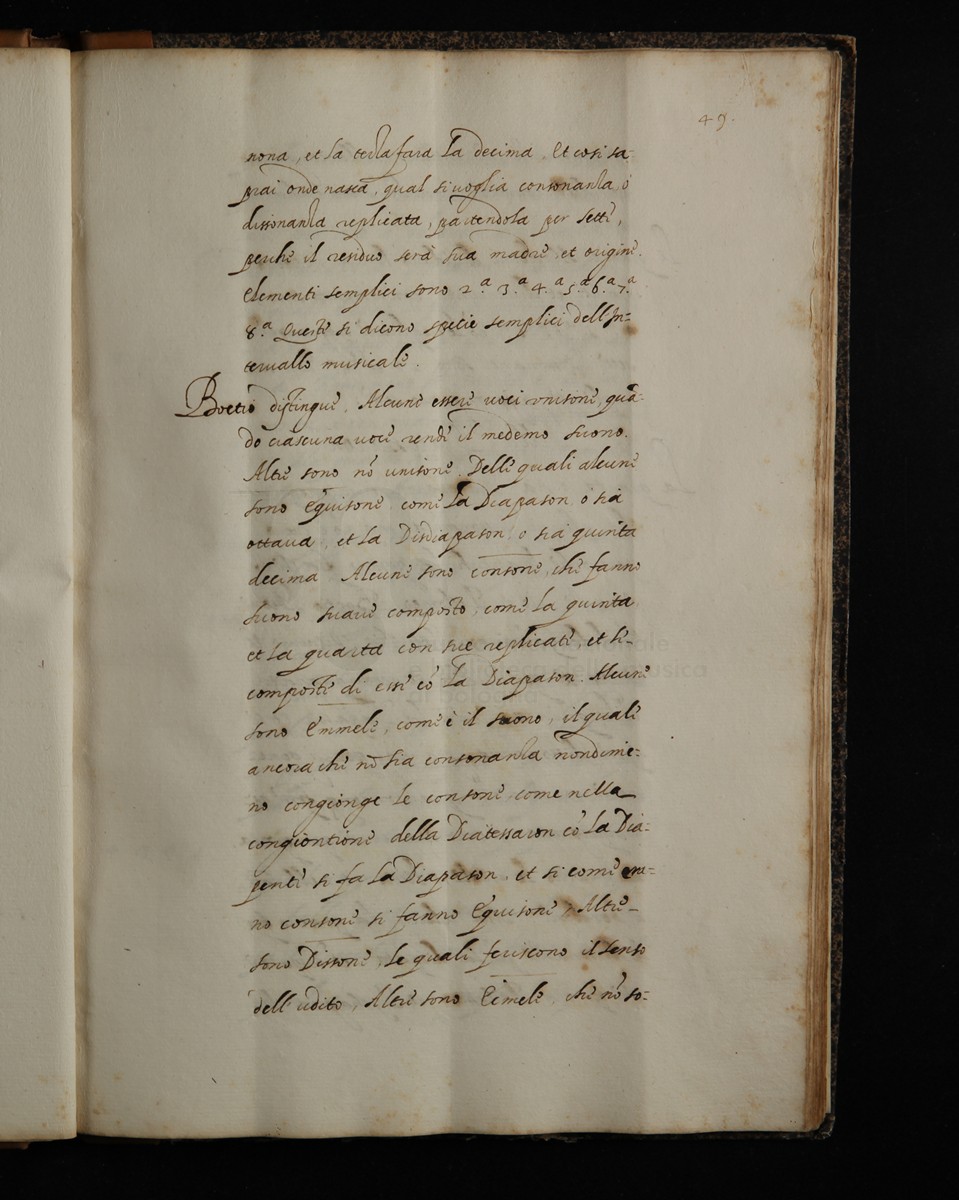 49.
nona, et la terza fara la decima. Et cosi sa-
prai onde nasca, qual si uoglia consonanza, ò
dissonanza replicata, partendola per sette,
perche il residuo serà sua madre, et origine.
Elementi semplici sono 2.ª 3.ª 4.ª 5.ª 6.ª 7.ª
8.ª Queste si dicono specie semplici dell'In=
teruallo musicale.
Boetio distingue. Alcune essere uoci unisone, quã-
do ciascuna uoce rende il medemo suono.
Altre sono nõ unisone. Delle quali alcune
sono Equisone, come la Diapason, ò sia
ottaua, et la Disdiapason, o sia quinta
decima. Alcune sono consone, che fanno
suono suaue composto, come la quinta
et la quarta con sue replicate, et li-
composti di esse cõ la Diapason. Alcune
sono Emmele, come è il suono, il quale
ancora che nõ sia consonanza nondime=
no congionge le consone come nella
congiontione della Diatessaron cõ la Dia=
pente si fa la Diapason, et si come
no consone si fanno Equisone, Altre-
sono Dissone, le quali feriscono il senso
dell'udito, Altre sono Ecmele, che nõ so=